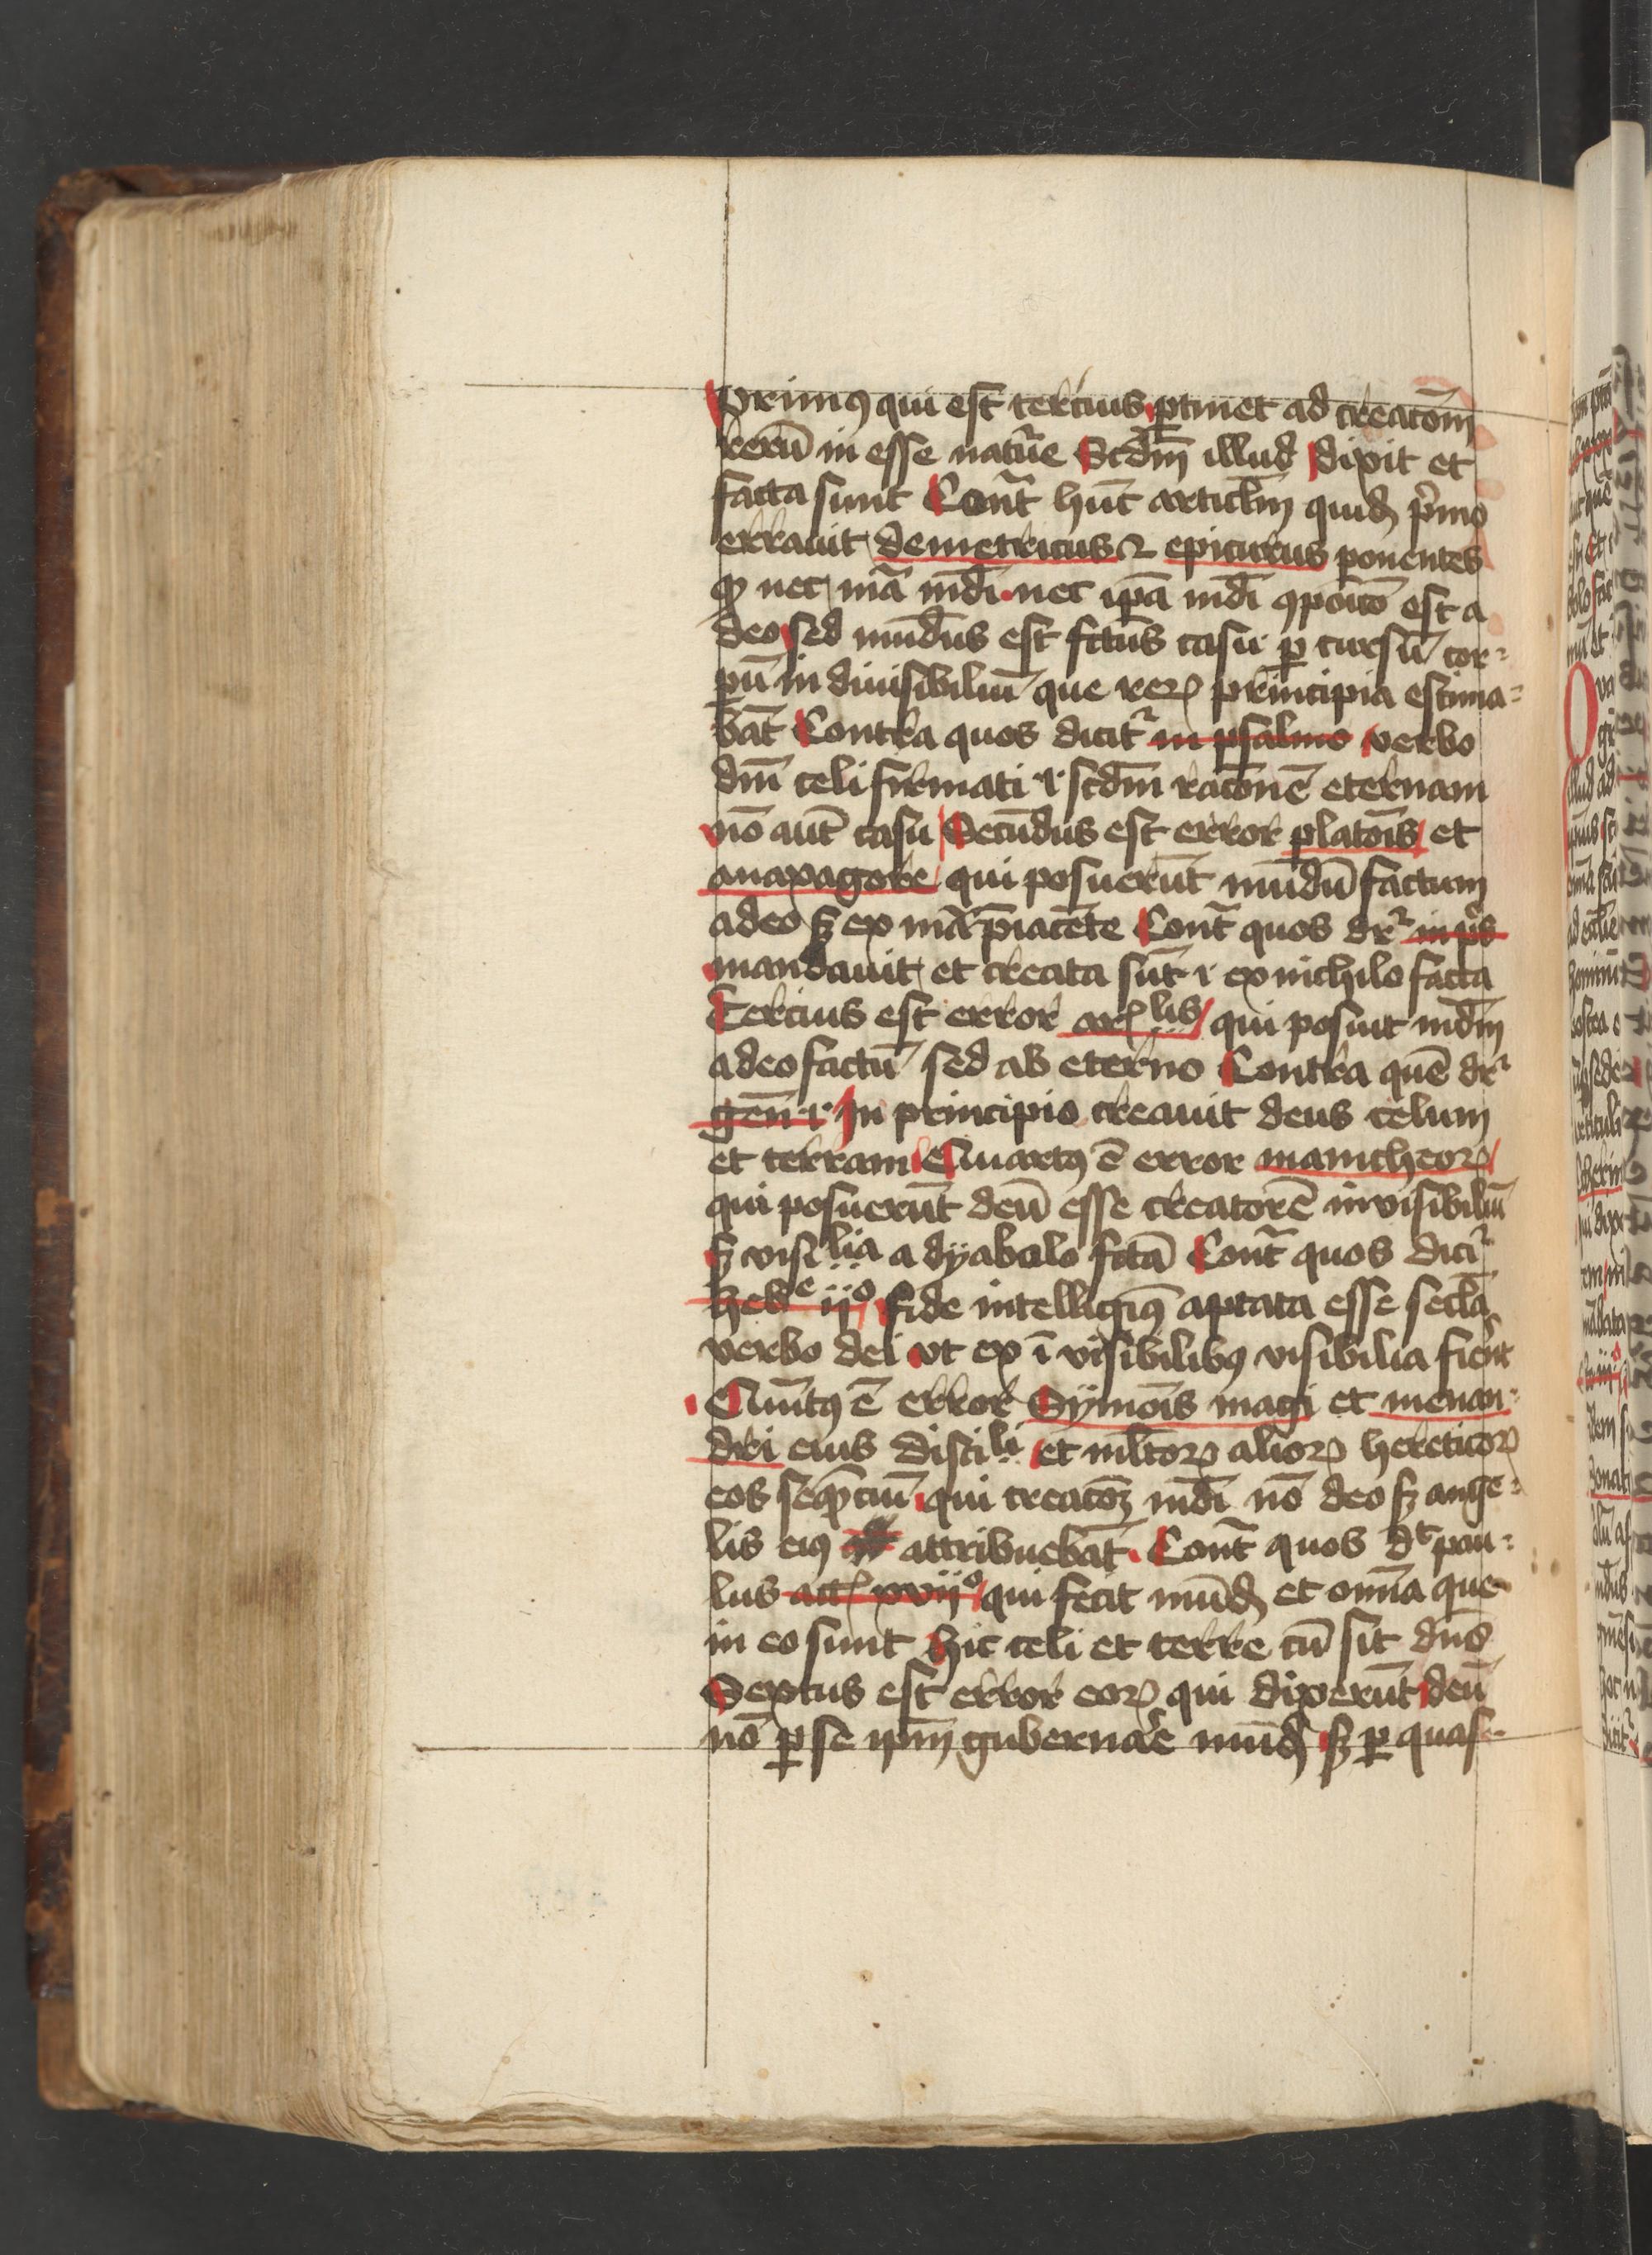 Primꝰ qui est tercius ꝑtinet ad creatōm
rerū in esse natūe Scd̄m illud dixit et
facta sunt Cont̄ hūc articl̄m quidē p̄mo
errauit demetricus ⁊ epicurus ponentes
ꝙ nec mā mūdi nec ip̄a mūdi ꝯpōito est a
deo sed mūdus est fctūs casu ꝑ cursū cor⸗
pū in diuisibiliū que rerꝝ principia estima⸗
bāt Contra quos dicit᷑ in psalmo verbo
dnī celi firmati .i. scd̄m racōnē eternam
nō aut̄ casu Secūdus est error platōis et
anaxagore qui posuerūt mūdū factum
a deo sꝫ ex mā p̄iacēte Cont̄ quos dr̄ in ps
mandauit et creata sūt .i. ex nichilo facta
Tercius est error arꝭlis qui posuit mūdm
a deo factū sed ab eterno Contra quē dr̄
gen̄ .i. In principio creauit deus celum
et terram Quartꝰ ē error manicheorꝝ
qui posuerūt deū esse creatorē invisibiliū
sꝫ visilia a dyabolo fctā Cont̄ quos dicit᷑
hebre ijº fide intelligimꝰ aptata esse secl̄a
verbo dei vt ex ī visibilibꝰ visibilia fiēnt
Quītꝰ ē error Symōis magi et menan⸗
dri eius discili et ml̄torꝝ aliorꝝ hereticorꝝ
eos seqn̄ciū qui creacōꝫ mūdi nō deo sꝫ ange⸗
lis eiꝰ attribuebāt Cont̄ quos dt pau⸗
lus actꝭ xvijº qui fecit mūdū et omīa que
in eo sunt hic celi et terre cū sit dn̄s
Sextus est error eorꝝ qui dixerūt deū
nō ꝑ se ipm̄ gubernare mūdū sꝫ ꝑ quas⸗